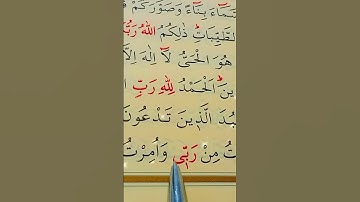 السَّمَٓاءَ بِنَٓاءً وَصَوَّرَكُمْ
الطَّيِّبَاتِ ذٰلِكُمُ اللّٰهُ رَبُّ
هُوَ الْحَيُّ لَٓا اِلٰهَ
اَلْحَمْدُ لِلّٰهِ رَبِّ
الَّذ۪ينَ تَدْعُونَ
مِنْ رَبّ۪ي وَاُمِرْتُ